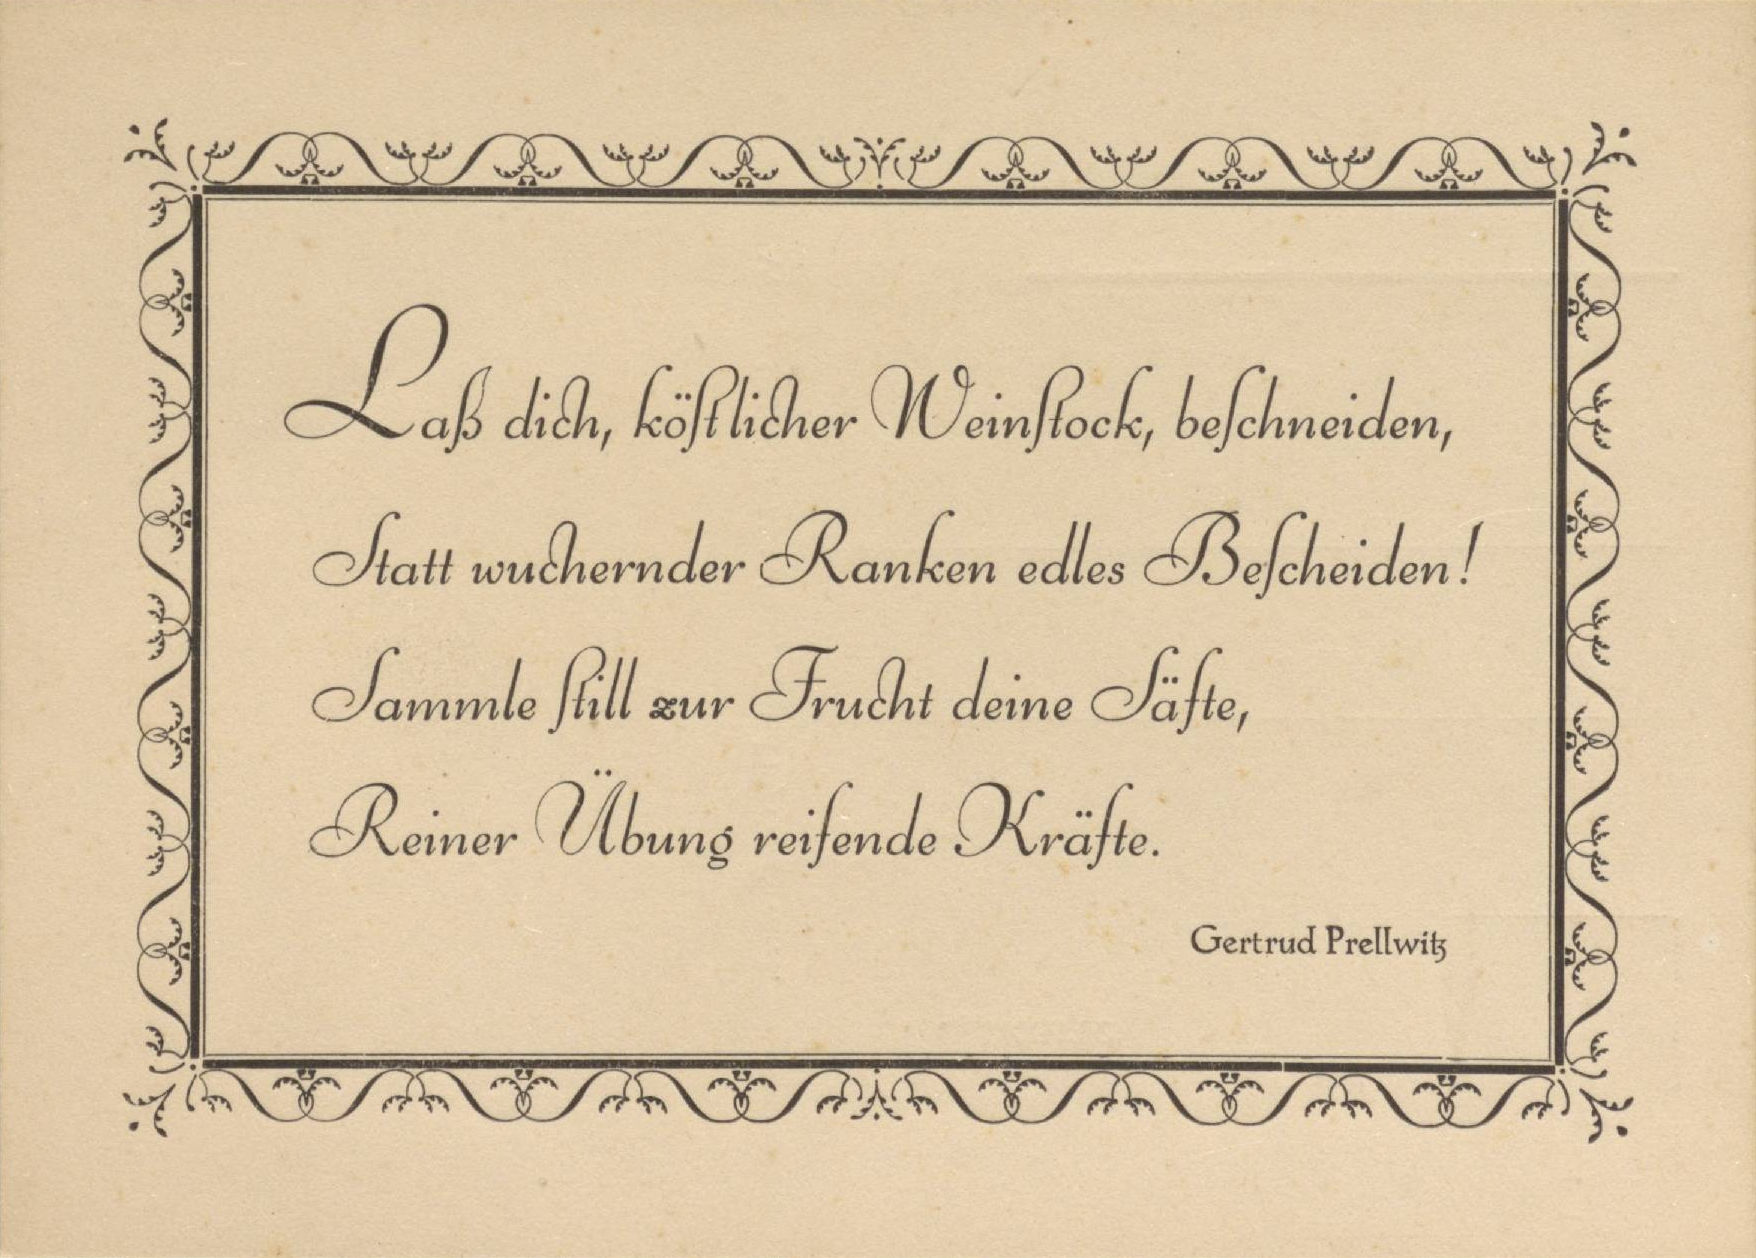 Laß dich, köſtlicher Weinſtock, beſchneiden,
Statt wuchernder Ranken edles Beſcheiden!
Sammle ſtill zur Frucht deine Säfte,
Reiner Übung reifende Kräfte.
Gertrud Prellwitz